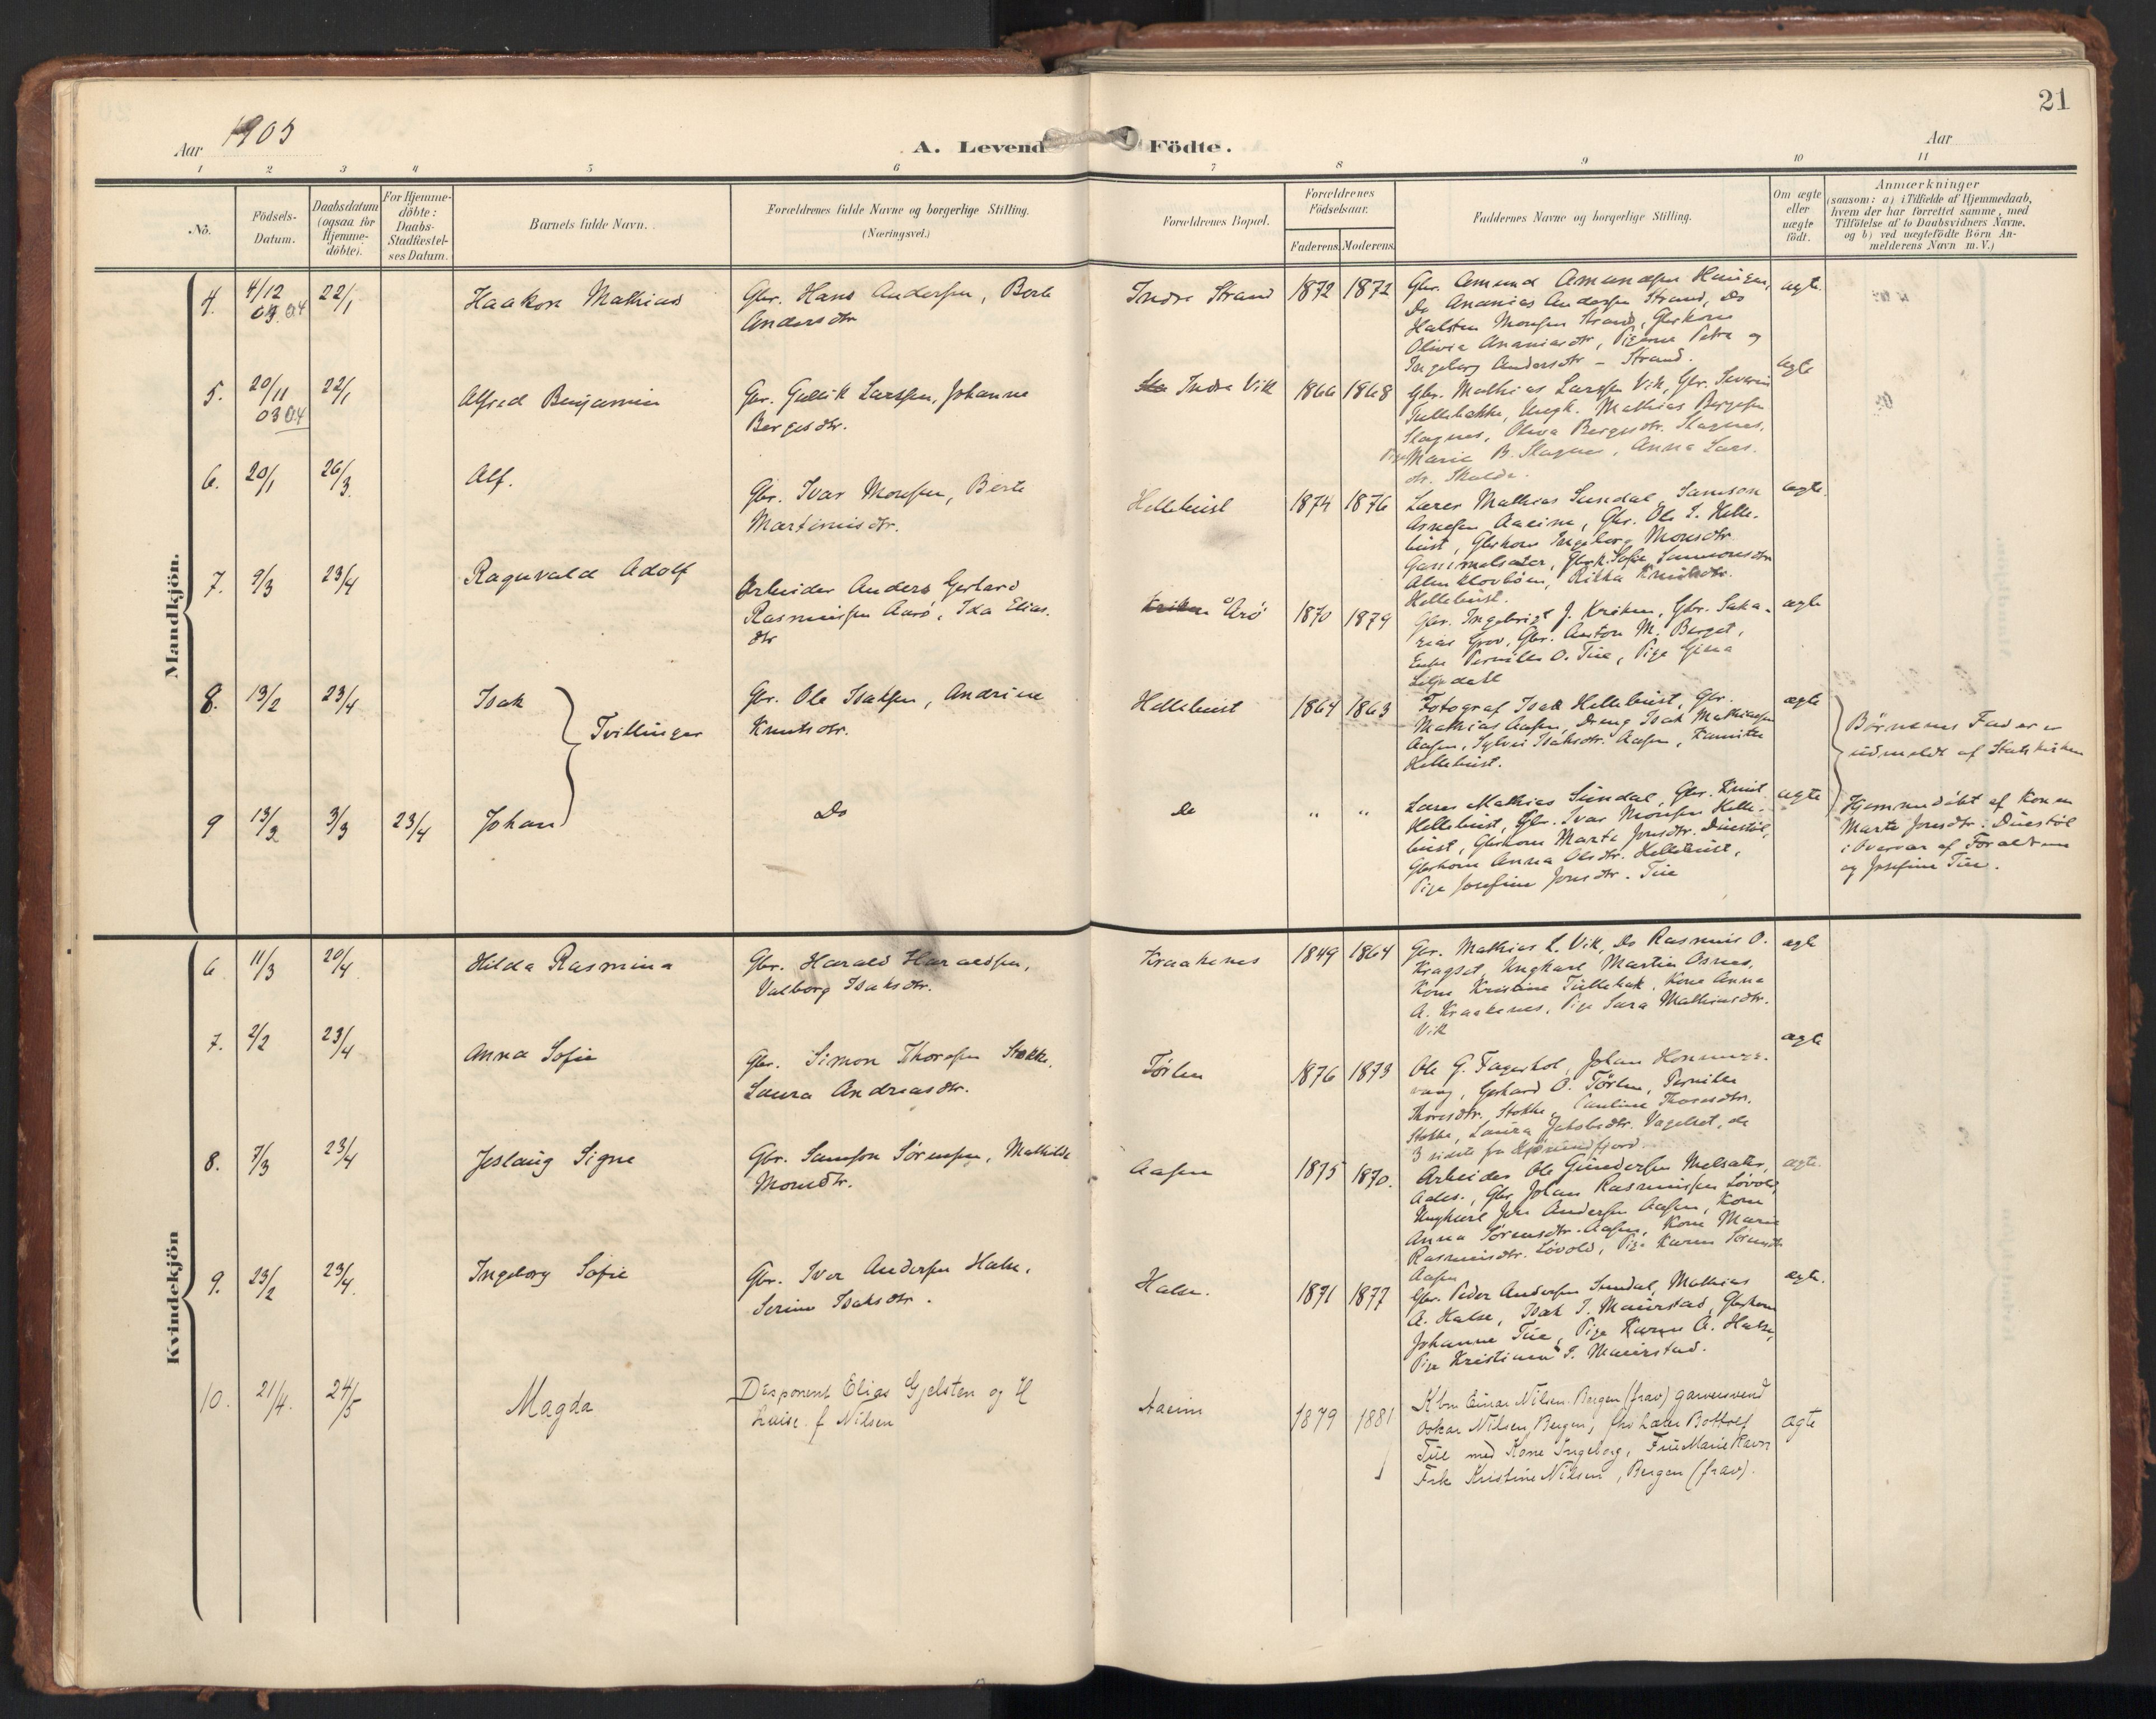 21
Aar 1905
A. Levende Födte.
Aar
1 2 3 4 5 6 7 8 9 10 11
No.
Födsels-Datum.
Daabsdatum (ogsaa for Hjemme-döbte).
For Hjemme-döbte: Daabs-Stadfæstel-ses Datum.
Barnets fulde Navn.
Forældrenes fulde Navne og borgerlige Stilling.
(Næringsvei.)
Forældrenes Bopæl.
Forældrenes Födselsaar.
Faderens. Moderens.
Faddernes Navne og borgerlige Stilling.
Om ægte eller uægte födt.
Anmærkninger
(saasom: a) i Tilfælde af Hjemmedaab,
hvem der har forrettet samme, med
Tilföielse af to Daabsvidners Navne,
og b) ved uægtefödte Börn An-
melderens Navn m. V.)
Mandkjön.
4. 4/12 03 04 22/1 Haakon Mathias
Gbr. Hans Anderssen, Berte
Andersdtr
Indre Strand 1872 1872
Gbr. Amund Amundsen Haugen,
Do Ananias Anderssen Strand, do
Halsten Monssen Strand, Gbrkone
Olivia Ananiasdtr, Pigerne Petra og
Ingeborg Andersdtr - Strand.
ægte
5. 20/11 03 04 22/1 Alfred Benjamin
Gbr. Gullik Larssen, Johanne
Bergesdtr.
Indre Vik 1866 1868
Gbr. Mathias Larssen Vik, Gbr. Severin
Tullebakke, Ungk. Mathias Bergesen
Slagnes, Oliva Bergesdtr. Slagnes,
Marie B. Slagnes, Anna Lars-
dtr. Skulda.
ægte
6. 20/1 26/3 Alf.
Gbr. Ivar Monssen, Berte
Martinusdtr.
Hellebust 1874 1876
Lærer Mathias Sundal, Samson
Arnesen Aaeim, Gbr. Ole I. Helle-
bust, Gbrkone Ingeborg Monsdtr.
Hellebust.
ægte.
7. 9/3 23/4 Ragnvald Adolf
Arbeider Anders Gerhard
Rasmussen Aarö, Ida Elias-
dtr
Årö 1870 1879
Gbr. Ingebrigt J. Kriken, Gbr. Saka-
rias Grov, Gbr. Anton M. Berget,
Enke Pernille O. Tue, Pige Gina
Liljedahl
ægte
8. 13/2 23/4 Isak
Tvillinger
Gbr. Ole Isaksen, Andrine
Knutsdtr.
Hellebust 1864 1863
Fotograf Isak Hellebust, Gbr.
Mathias Aasen, Dreng Isak Mathiassen
Aasen, Sylvei Isaksdtr. Aasen, Kamilla
Hellebust.
ægte
Börnenes Fader er
udmeldt af Statskirken
9 13/2 3/3 23/4 Johan
Do
do " "
Lærer Mathias Sundal, Gbr. Knut
Hellebust, Gbr. Ivar Monssen Helle-
bust, Gbrkone Marte Jonsdtr. Duestöl,
Gbrkone Anna Olsdtr. Hellebust,
Pige Josefine Jonsdtr. Tue
ægte
Hjemmedöbt af Konen
Marte Jonsdtr. Duestöl
i Overvær af Forældrene
og Josefine Tue.
Kvindekjön
6. 11/3 20/4 Hilda Rasmina
Gbr. Harald Haraldsen,
Valborg Isaksdtr.
Kraakenes 1849 1864
Gbr. Mathias L. Vik, Do Rasmus O.
Kragset, Ungkarl Martin Osnes,
Kone Kristine Tullebak, Kone Anna
A. Kraakenes, Pige Sara Mathiasdtr.
Vik
ægte
7. 2/2 23/4 Anna Sofie
Gbr. Simon Thoresen Stokke,
Laura Andreasdtr.
Törlen 1876 1873
Ole G. Fagerhol, Johan Hornings-
vaag, Gerhard O. Törlen, Pernille
Thoresdtr. Stokke, Pauline Thoresdtr.
Stokke, Laura Jakobsdtr. Vageleet, de
3 sidste fra Hjörundfjord.
ægte
8. 7/3 23/4 Jeslaug Signe
Gbr. Samson Sörenssen, Mathilde
Monsdtr.
Aasen 1875 1870.
Arbeider Ole Gunderssen Melsæter,
Aales., Gbr. Johan Rasmussen Lövold,
Ungkarl Jon Anderssen Aasen, Kone
Anna Sörensdtr. Aasen, Kone Marie
Rasmusdtr. Lövold, Pige Karen Sörensdtr
Aasen
ægte.
9. 23/2 23/4. Ingeborg Sofie
Gbr. Iver Anderssen Halse,
Serine Isaksdtr.
Halse. 1871 1877
Gbr. Peder Anderssen Sundal, Mathias
A. Halse, Isak I. Maurstad, Gbrkone
Johanne Tue, Pige Karen A. Halse,
Pige Kristiane I. Maurstad.
ægte.
10. 21/4. 24/5 Magda
Disponent Elias Gjelsten og H
Luise f Nilsen
Aaeim 1879 1881
Kbm Einar Nilsen Bergen (frav) garversvend
Oskar Nilsen, Bergen, fhv Lærer Bottolf
Tue med Kone Ingeborg, Frue Marie Ravn
Frk Kristine Nilsen, Bergen (frav).
ægte